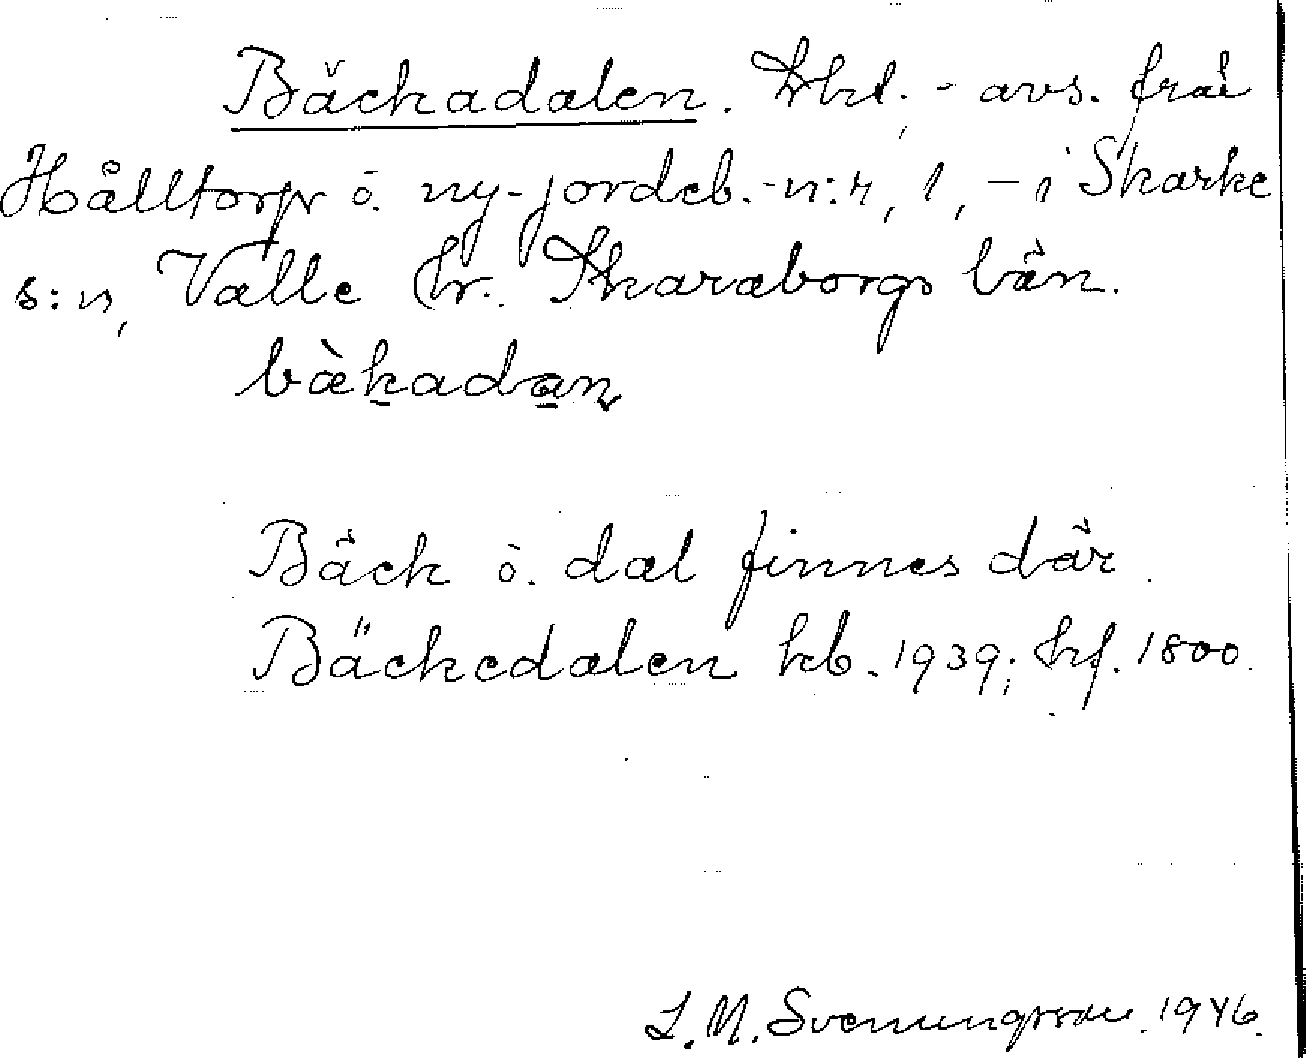 Bäckadalen. Trkt. - avs. från
Hålltorp o. ny-jordeb.-n:r, 1, - i Skarke
s:n, Valle hr. Skaraborgs län.
bæ̀kadan
Bäck o. dal finnes där.
Bäckedalen kb. 1939; kf. 1800.
L. M. Svenungsson. 1946.